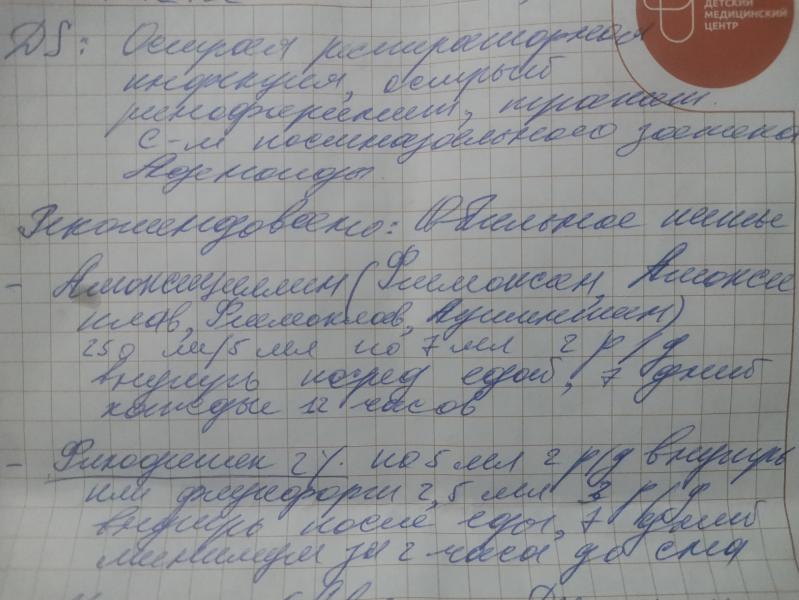 ДЕТСКИЙ
МЕДИЦИНСКИЙ
ЦЕНТР
DS: Острая респираторная
инфекция, острый
ринофарингит, трахеит.
С-м постназального затека
Аденоиды
Рекомендовано: Обильное питье
- Амоксициллин (Флемоксин, Амокси
клав, Флемоклав, Аугментин)
250 мг/5 мл по 7 мл 2 р/д
внутрь перед едой, 7 дней
каждые 12 часов
- 2% по 5 мл 2 р/д внутрь
или флуифорт 2,5 мл р/д
внутрь после еды, 7 дней
минимум за 2 часа до сна